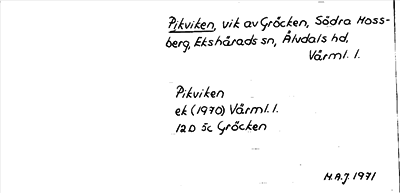 Pikviken, vik av Gröcken, Södra Hoss-
berg, Ekshärads sn, Älvdals hd,
Värml. l.
Pikviken
ek (1970) Värml. l.
12D 5c Gröcken
M.A.J 1971